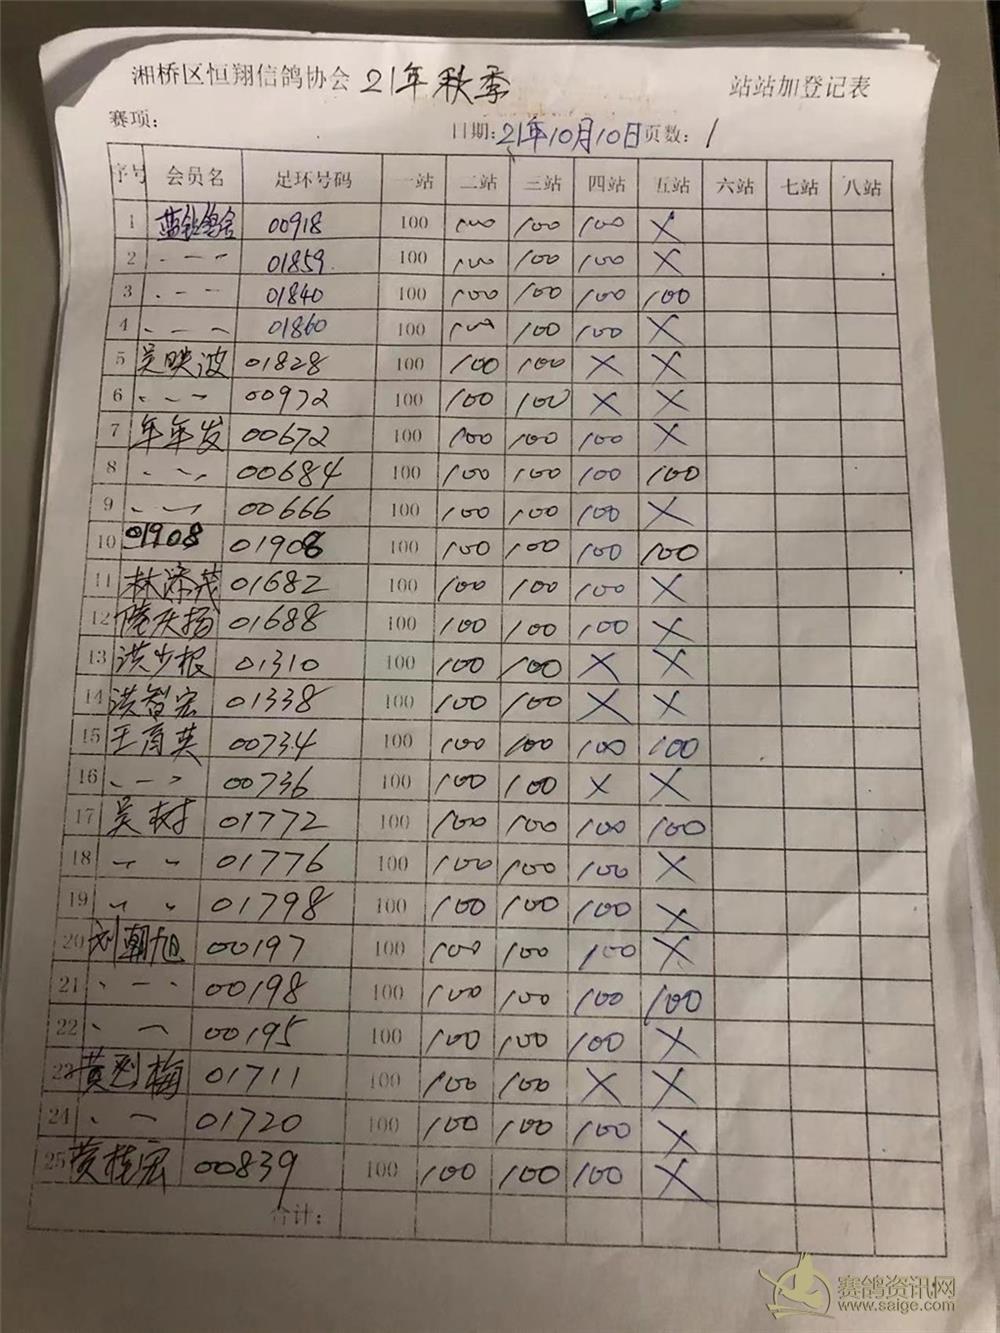 湘桥区恒翔信鸽协会 21年秋季 站站加登记表
赛项: 日期:21年10月10日 页数:1
序号 会员名 足环号码 一站 二站 三站 四站 五站 六站 七站 八站
1 00918 100 100 100 100 X
2 、一一 01859 100 100 100 100 X
3 、一一 01840 100 100 100 100 100
4 、一一 01860 100 100 100 100 X
5 吴映波 01828 100 100 100 X X
6 、、一 00972 100 100 100 X X
7 年年发 00672 100 100 100 100 X
8 、、、 00684 100 100 100 100 100
9 、一一 00666 100 100 100 100 X
10 01908 01908 100 100 100 100 100
11 林添茂 01682 100 100 100 100 X
12 01688 100 100 100 100 X
13 洪少根 01310 100 100 100 X X
14 洪智宏 01338 100 100 100 X X
15 王育英 00734 100 100 100 100 100
16 、一、 00736 100 100 100 X X
17 吴树 01772 100 100 100 100 100
18 、、 01776 100 100 100 100 X
19 、、 01798 100 100 100 100 X
20 刘朝旭 00197 100 100 100 100 X
21 、一、 00198 100 100 100 100 100
22 、一 00195 100 100 100 100 X
23 01711 100 100 100 X X
24 、一 01720 100 100 100 100 X
25 黄桂宏 00839 100 100 100 100 X
合计:
赛鸽资讯网
www.saige.com